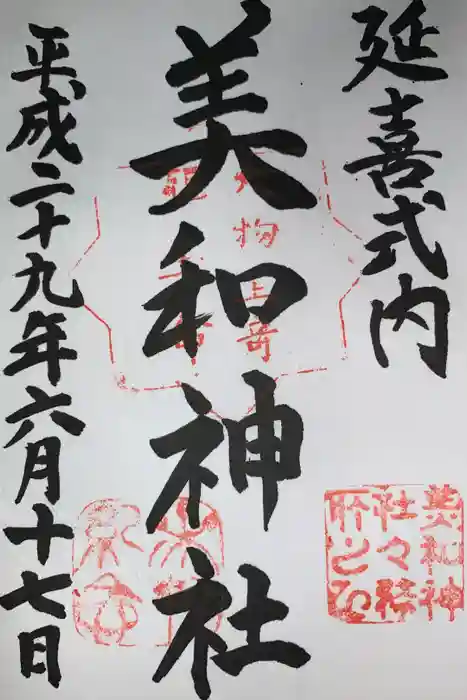 延喜式内
美和神社
平成二十九年六月十七日
美和神
社々務
所之印